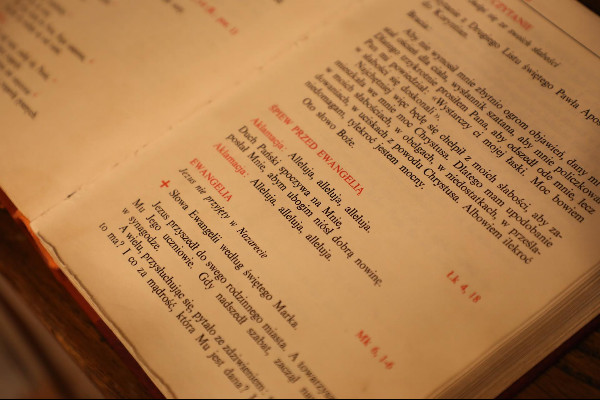 CZYTANIE
się ze swoich słabości
Czytanie z Drugiego Listu świętego Pawła Apos
do Koryntian.
Bracia:
Aby nie wynosił mnie zbytnio ogrom objawień, dany mi
jest oścień dla ciała, wysłannik szatana, aby mnie policzkował
Dlatego trzykrotnie prosiłem Pana, aby odszedł ode mnie, lecz
Pan mi powiedział: «Wystarczy ci mojej łaski. Moc bowiem
w słabości się doskonali».
Najchętniej więc będę się chełpił z moich słabości, aby za-
mieszkała we mnie moc Chrystusa. Dlatego mam upodobanie
w moich słabościach, w obelgach, w niedostatkach, w prześla-
dowaniach, w uciskach z powodu Chrystusa. Albowiem ilekroć
niedomagam, tylekroć jestem mocny.
Oto słowo Boże.
ŚPIEW PRZED EWANGELIĄ
Łk 4, 18
Aklamacja: Alleluja, alleluja, alleluja.
Duch Pański spoczywa na Mnie,
posłał Mnie, abym ubogim niósł dobrą nowinę.
Aklamacja: Alleluja, alleluja, alleluja.
EWANGELIA
Mk 6, 1-6
Jezus nie przyjęty w Nazarecie
✝ Słowa Ewangelii według świętego Marka.
Jezus przyszedł do swego rodzinnego miasta. A towarzysz
Mu Jego uczniowie. Gdy nadszedł szabat, zaczął
w synagodze.
A wielu, przysłuchując się, pytało ze zdziwieniem:
to ma? I co za mądrość, która Mu jest dana?